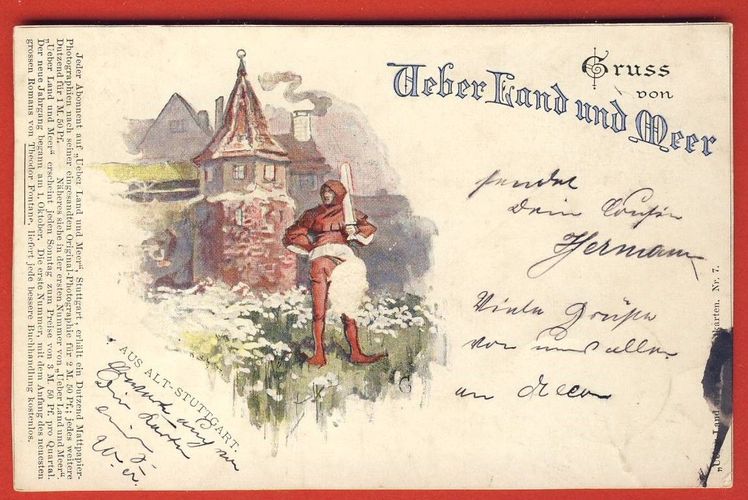 Gruss
von
Ueber Land und Meer
sendet
Dein Cousin
Hermann
Viele Grüße
von uns allen
an
AUS ALT-STUTTGART.
Jeder Abonnent auf „Ueber Land und Meer“, Stuttgart, erhält ein Dutzend Mattpapier-
Photographien nach seiner eingesandten Original-Photographie für 2 M. 50 Pf.; jedes weitere
Dutzend für 1 M. 50 Pf. Näheres siehe in der ersten Nummer von „Ueber Land und Meer“.
„Ueber Land und Meer“ erscheint jeden Sonntag zum Preise von 3 M. 50 Pf. pro Quartal.
Der neue Jahrgang begann am 1. Oktober. Die erste Nummer, mit dem Anfang des neuesten
grossen Romans von Theodor Fontane, liefert jede bessere Buchhandlung kostenlos.
„Ueber Land karten. Nr. 7.